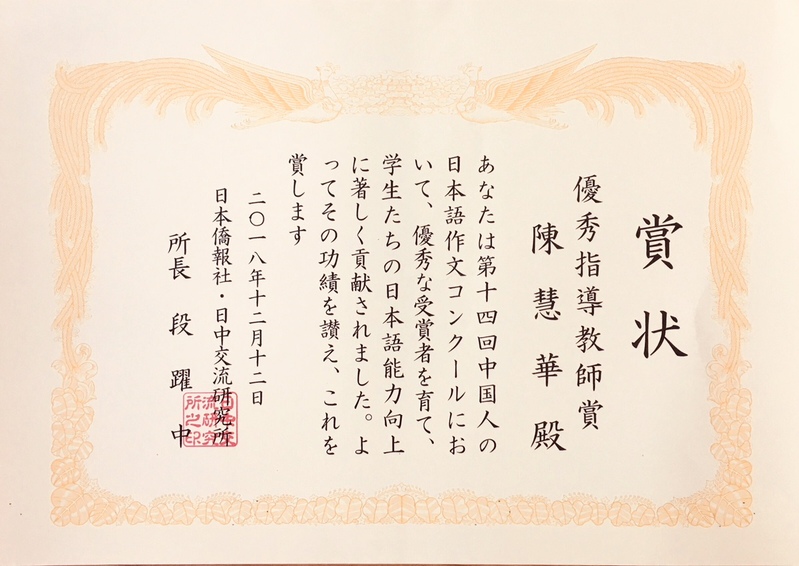 賞状
優秀指導教師賞
陳慧華殿
あなたは第十四回中国人の
日本語作文コンクールにお
いて、優秀な受賞者を育て、
学生たちの日本語能力向上
に著しく貢献されました。よ
ってその功績を讃え、これを
賞します
二〇一八年十二月十二日
日本僑報社・日中交流研究所
所長 段躍中